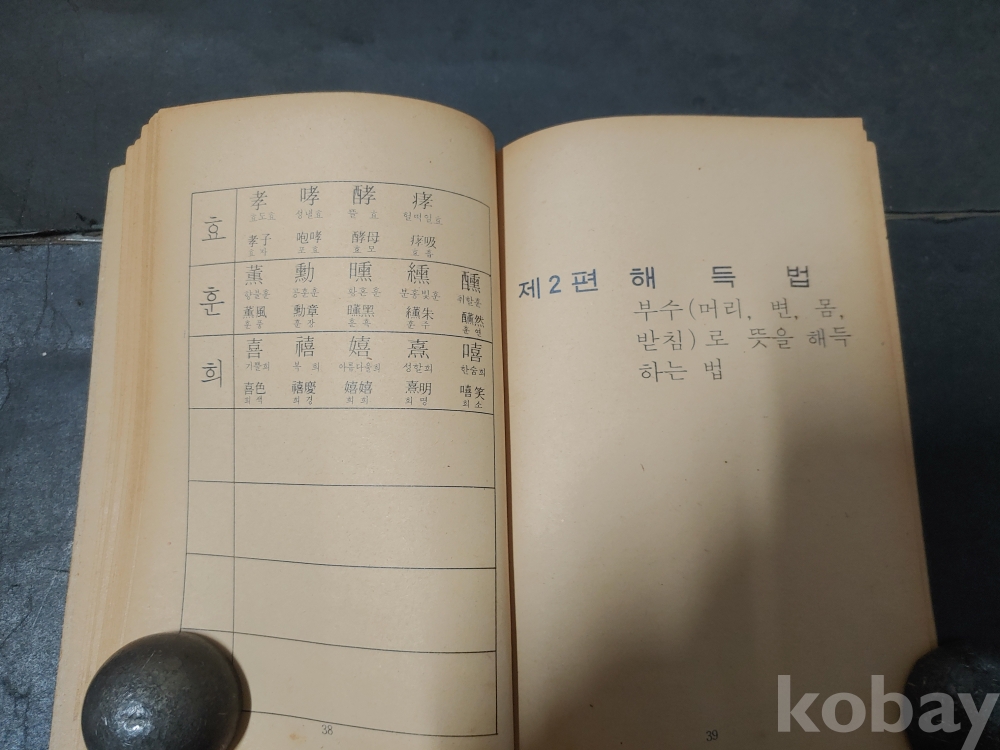 효
孝 哮 酵 痚
효도효 성낼효 뜰 효 할머일효
孝子 咆哮 酵母 痚吸
효자 포효 효모 효흡
훈
薰 勳 曛 纁 醺
향풀훈 공훈훈 황혼훈 분홍빛훈 취할훈
薰風 勳章 曛黑 纁朱 醺然
훈풍 훈장 훈흑 훈수 훈연
희
喜 禧 嬉 熹 嘻
기쁠희 복 희 아름다울희 성할희 한숨희
喜色 禧慶 嬉嬉 熹明 嘻笑
희색 희경 희희 희명 희소
38
제2편 해 득 법
부수(머리, 변, 몸,
받침)로 뜻을 해득
하는 법
39
kobay